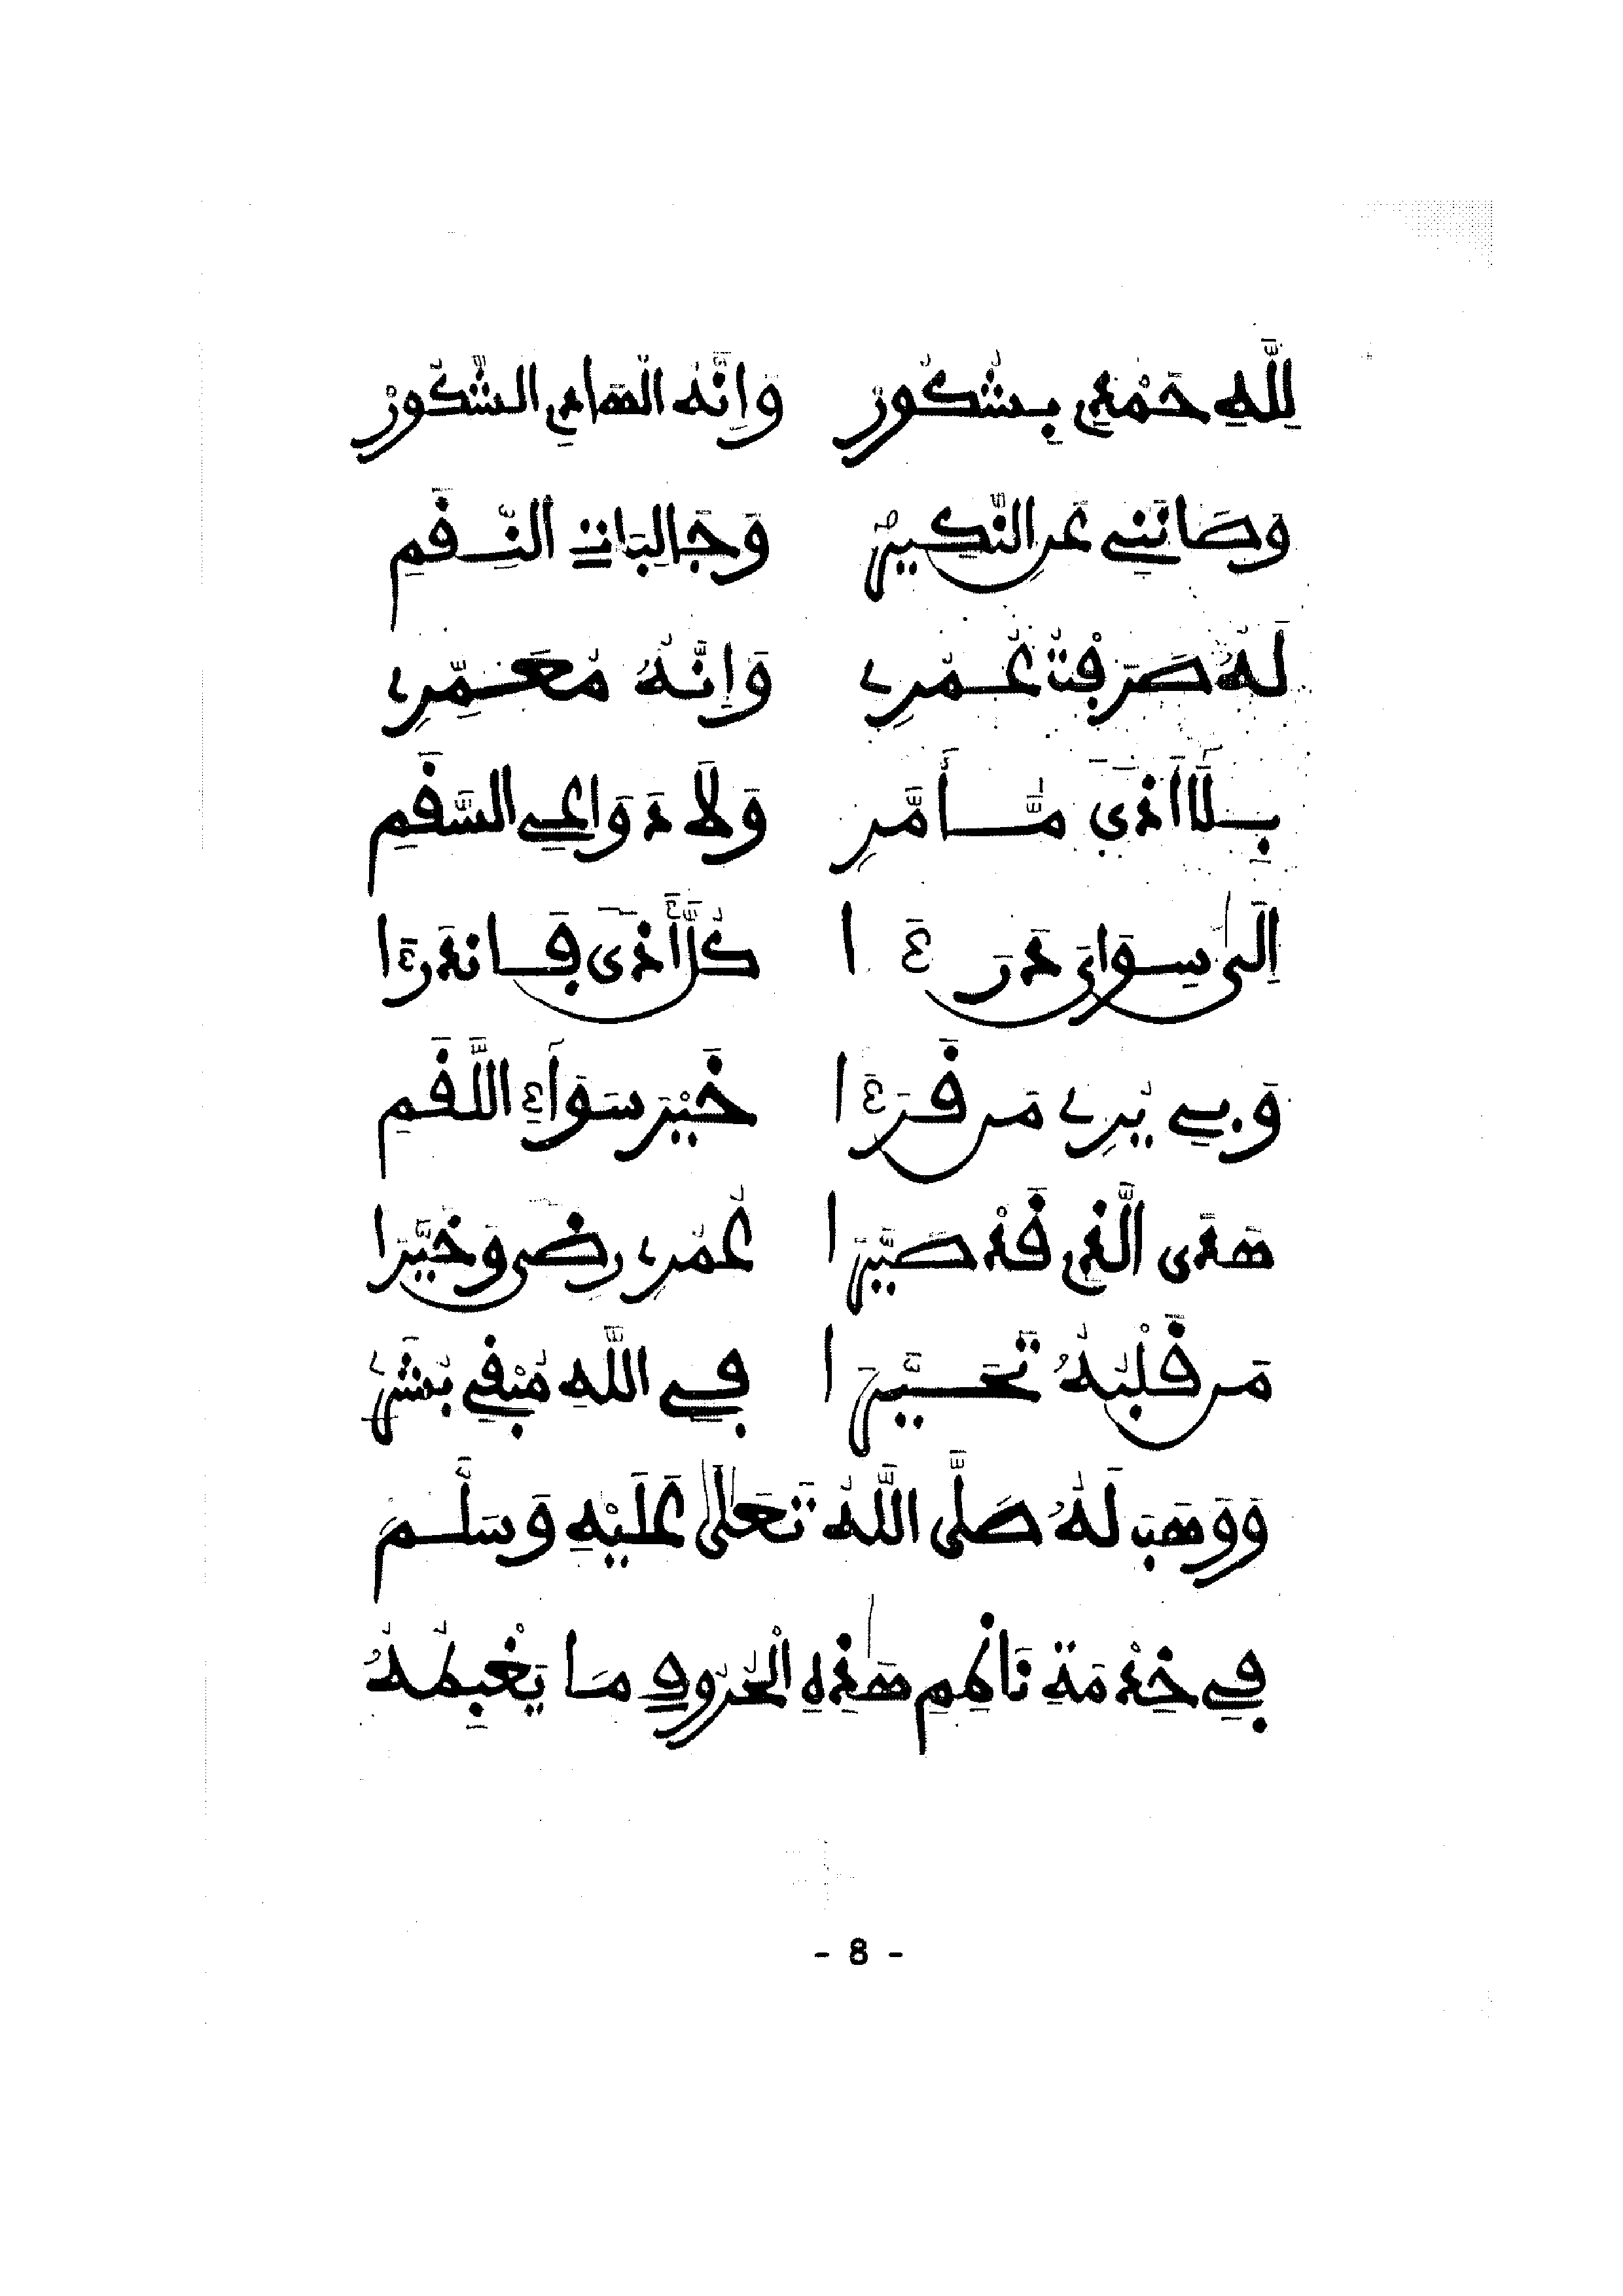 لِلَّهِ حَمْدِي بِشُكُورْ وَإِنَّهُ الْهَادِي الشَّكُورْ
وَصَانَنِي عَنِ النَّكِيرْ وَجَالِبَاتِ النِّقَمِ
لَهُ صَرَفْتُ عُمُرِي وَإِنَّهُ مُعَمِّرِي
بِلَا أَذًى مُأَمَّرِ وَلَا دَوَاعِي السَّقَمِ
إِلَى سِوَايَ دَرَءَا كُلَّ أَذًى فَانْدَرَءَا
وَبِي يُرِي مَنْ قَرَءَا خَيْرَ سَوَاءِ اللَّقَمِ
هَدَى الَّذِي قَدْ صَيَّرَا عُمْرِي رِضًى وَخَيَّرَا
مَنْ قَلْبُهُ تَحَيَّرَا فِي اللَّهِ مُبْقِي بَشَرِي
وَوَهَبَ لَهُ صَلَّى اللَّهُ تَعَالَى عَلَيْهِ وَسَلَّمَ
فِي خِدْمَةِ نَاظِمِ هَذِهِ الْحُرُوفِ مَا يَغْبِطُهُ
- 8 -